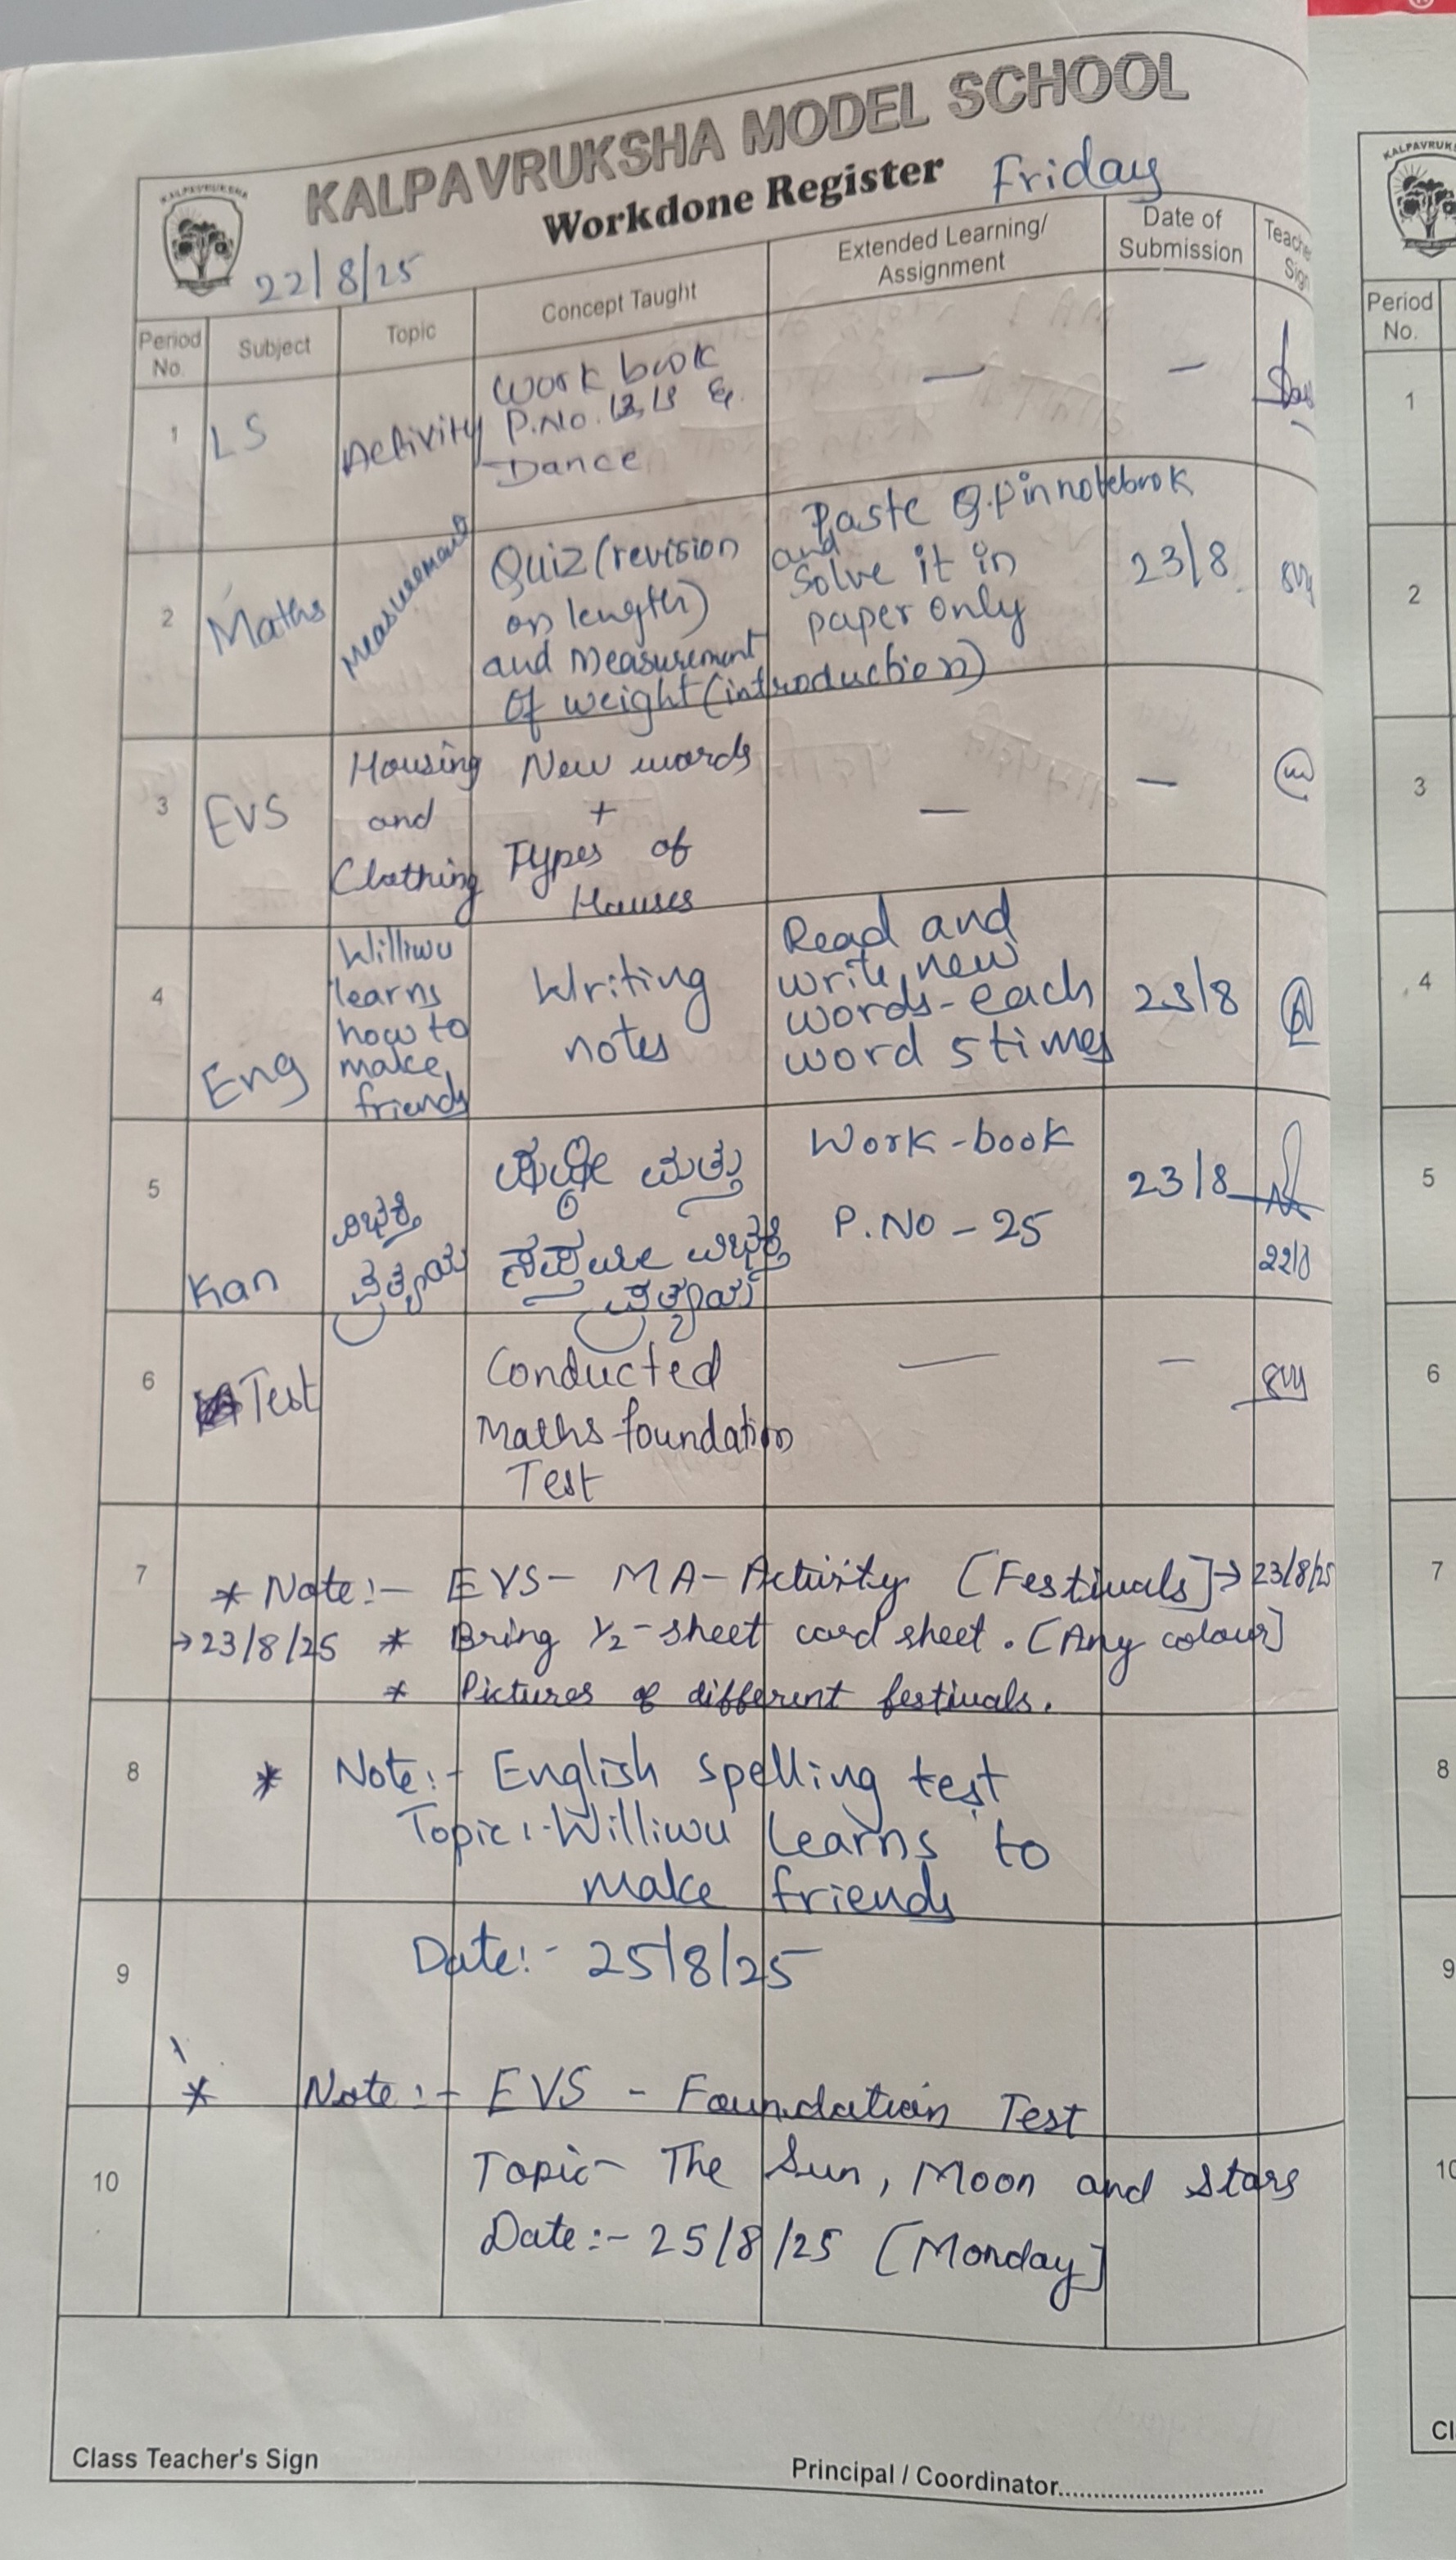 KALPAVRUKSHA MODEL SCHOOL
Workdone Register Friday
KALPAVRUKSHA
22/8/25
Period No. Subject Topic Concept Taught Extended Learning/ Assignment Date of Submission Sign
1 LS Activity Work book
P.No. &
Dance — —
2 Maths Measurement Quiz (revision
on length)
and Measurement
Of weight (introduction)
Paste Q.P in notebook
and
Solve it in
paper only
23/8
3 EVS Housing
and
Clothing
New words
+
Types of
Houses
— —
4 Eng Williwu
learns
how to
make
friends
Writing
notes
Read and
write new
words - each
word 5 times
23/8
5 Kan ವಿಭಕ್ತಿ
ಪ್ರತ್ಯಯ
ಮತ್ತು
ವಿಭಕ್ತಿ
ಪ್ರತ್ಯಯ
Work-book
P.NO - 25
23/8
22/8
6 Test Conducted
Maths foundation
Test
— —
7 * Note:- EVS - MA - Activity [Festivals] → 23/8/25
→ 23/8/25 * Bring 1/2-sheet card sheet. [Any colour]
* Pictures of different festivals.
8 * Note:- English spelling test
Topic:- Williwu learns to
make friends
9 Date:- 25/8/25
* Note:- EVS - Foundation Test
10 Topic- The Sun, Moon and Stars
Date:- 25/8/25 [Monday]
Class Teacher's Sign
Principal / Coordinator
Period
No.
1
2
3
4
5
6
7
8
9